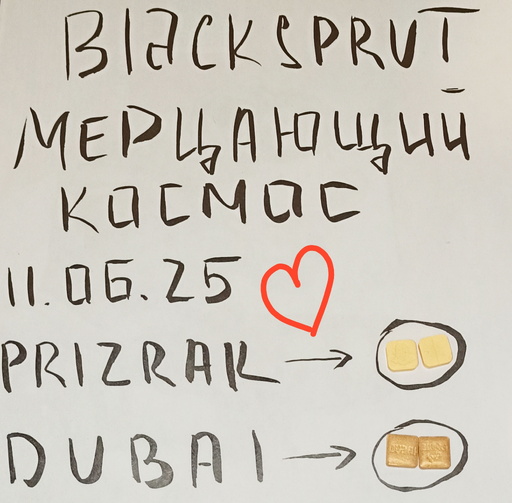 BlackSPRUT
МЕРЦАЮЩИЙ
КОСМОС
11.06.25
PRIZRAK
DUBAI